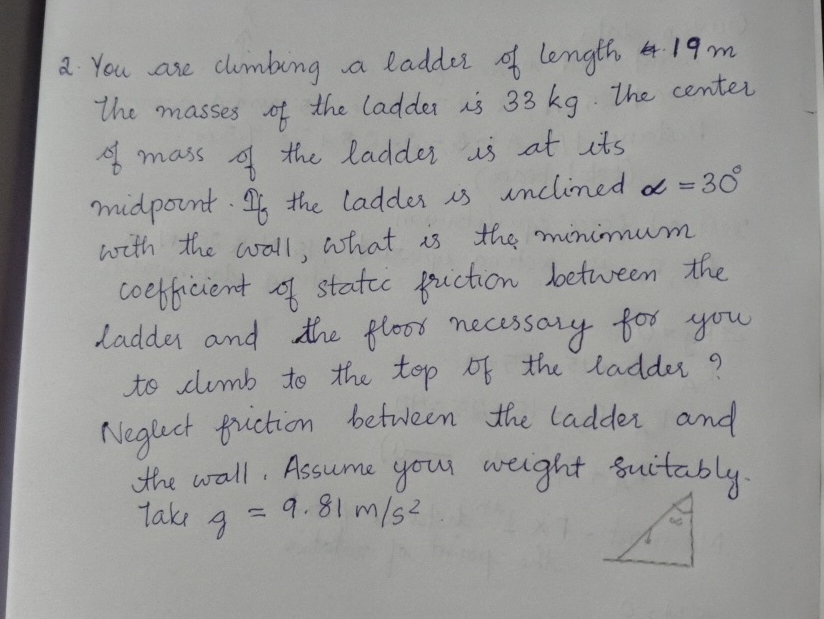 2. You are climbing a ladder of length 4.19 m
The masses of the ladder is 33 kg. The center
of mass of the ladder is at its
midpoint. If the ladder is inclined α = 30°
with the wall, what is the minimum
coefficient of static friction between the
ladder and the floor necessary for you
to climb to the top of the ladder?
Neglect friction between the ladder and
the wall. Assume your weight suitably.
Take g = 9.81 m/s²
α